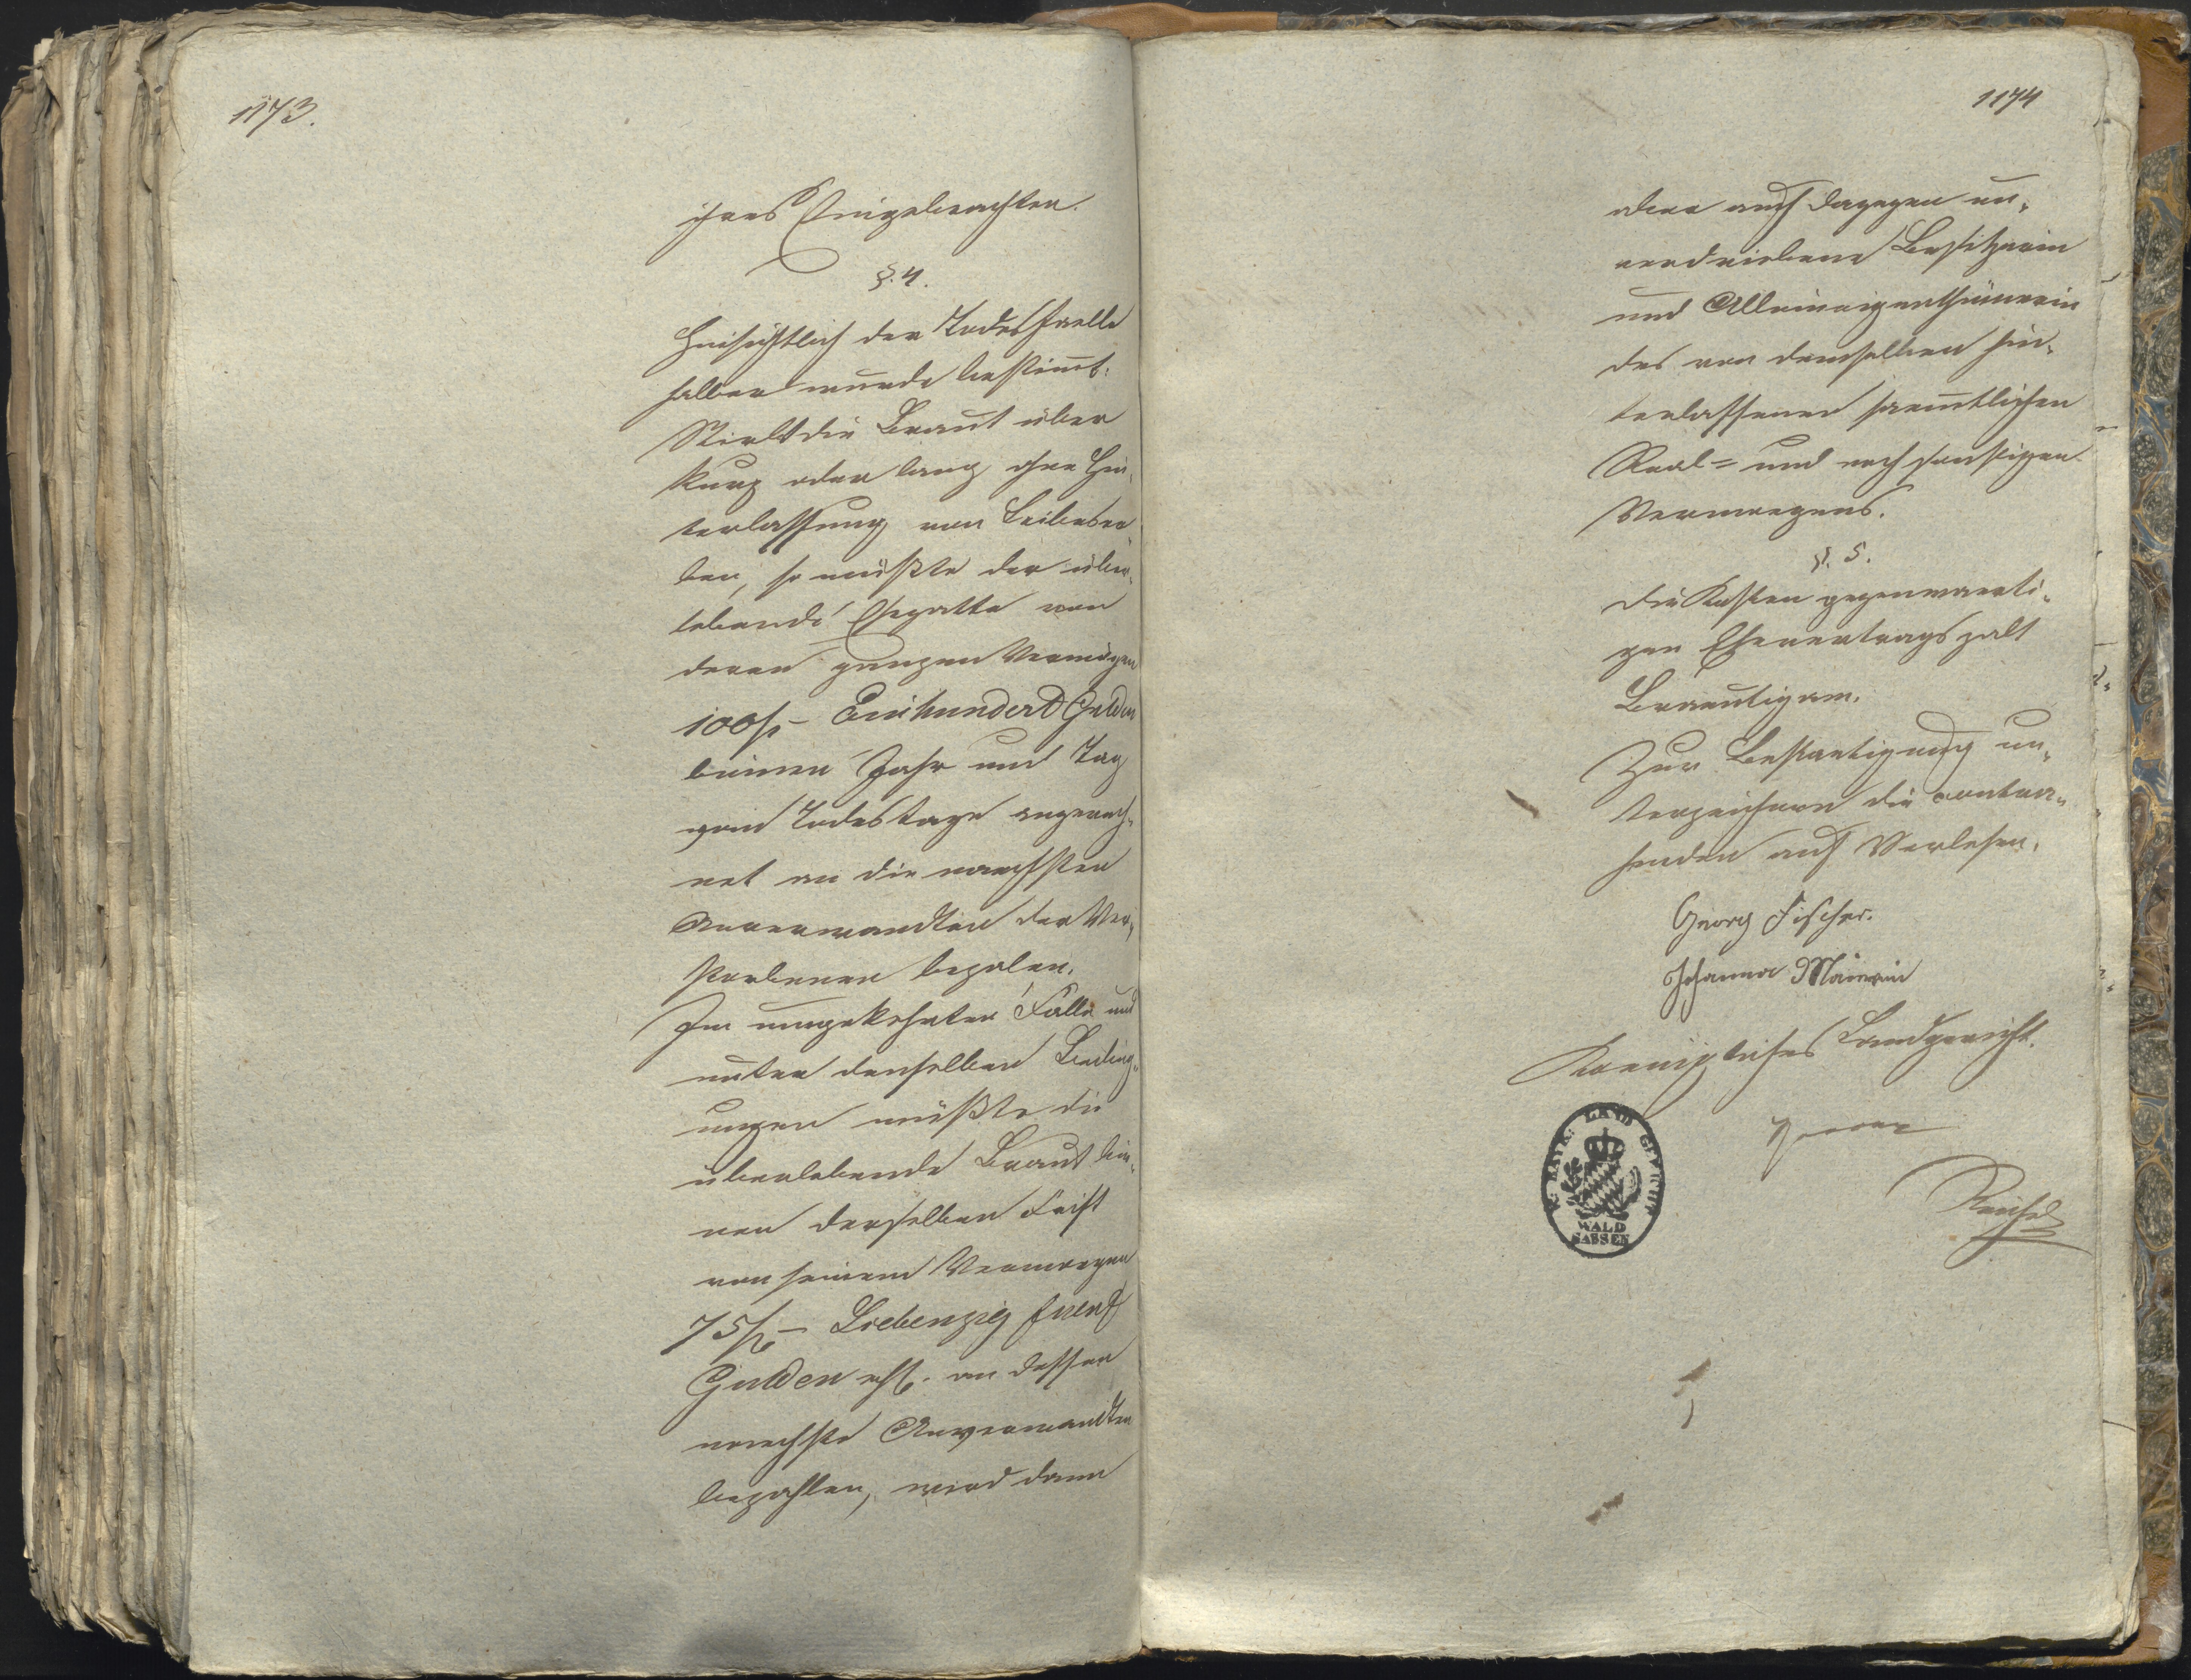 1173.
ihres Eingebrachten.
§. 4.
Hinsichtlich der Todesfaelle
halber wurde bestimmt:
Stirbt die Braut über
kurz oder lang ohne Hin„
terlassung von Leibeser„
ben, so müßte der über„
lebende Ehegatte von
deren ganzen Vermögen
100 f – Einhundert Gulden
binnen Jahr und Tag
vom Todestage angerech„
net an die naechsten
Anverwandten der Ver„
storbenen bezalen.
Im umgekehrten Falle und
unter denselben Beding„
ungen müßte die
überlebende Braut bin„
nen derselben Frist
von seinem Vermoegen
75 f – Siebenzig fuenf
Gulden rh. an dessen
naechste Anverwandten
bezahlen, wird dann
1174
aber auch dagegen un„
verdriebene Besitzerin
und Alleineigenthümerin
des von demselben hin„
terlassenen saemtlichen
Real= und noch sonstigen
Vermoegens.
§. 5.
Die Kosten gegenwaerti„
gen Ehevertrags zalt
Braeutigam.
Zur Bestaetigung un„
terzeichnen die contra„
henden nach Verlesen.
Georg Fischer.
Johanna Maierin
Koenigliches Landgericht.
K. BAYR. LAND GERICHT
WALD
SASSEN